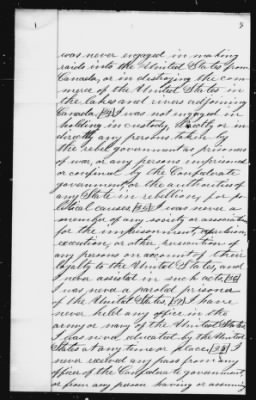 was never engaged in making
raids into the United States from
Canada, or in destroying the com-
merce of the United States in
the lakes and rivers adjoining
Canada. I was not engaged in
holding in custody, directly or in-
directly any persons taken by
the rebel government as prisoners
of war, or any persons imprisoned
or confined by the Confederate
government, or the authorities of
any State in rebellion, for po-
litical causes. I was never a
member of any society or association
for the imprisonment, expulsion,
execution, or other persecution of
any persons on account of their
loyalty to the United States, and
I never assisted in such acts.
I was never a paroled prisoner
of the United States. I have
never held any office in the
army or navy of the United States
I was never educated by the United
States at any time or place. I
never received any pass from any
officer of the Confederate government,
or from any person having or assuming